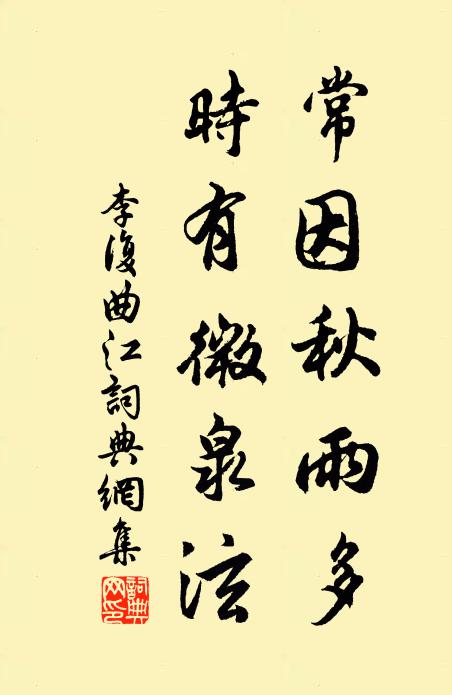 常因秋雨多
時有微泉泫
李復曲江詞典網集
詞典網印